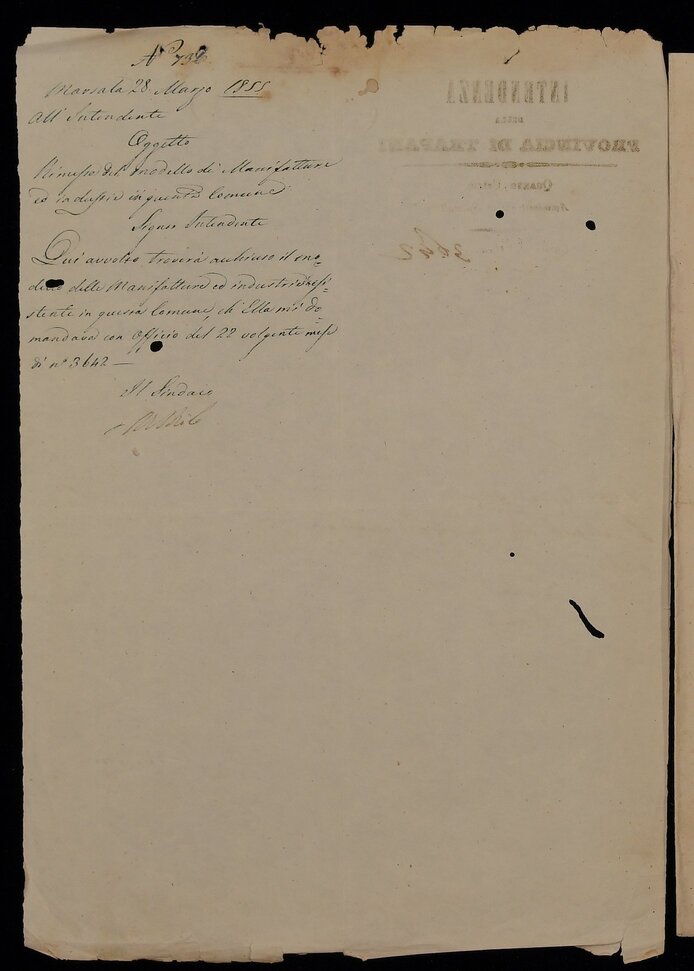 Marsala 28 Marzo 1855
All' Intendente
Oggetto
Rimesso del modello di Manifatture
ed industrie in questa Comune
Signor Intendente
Qui avvolto troverà acchiuso il mo=
dello delle Manifatture ed industrie esi=
stente in questa Comune, ch' Ella mi do=
mandava con Officio del 22 volgente mese
di n° 3642 —
Il Sindaco
INTENDENZA
DELLA
PROVINCIA DI TRAPANI
3642